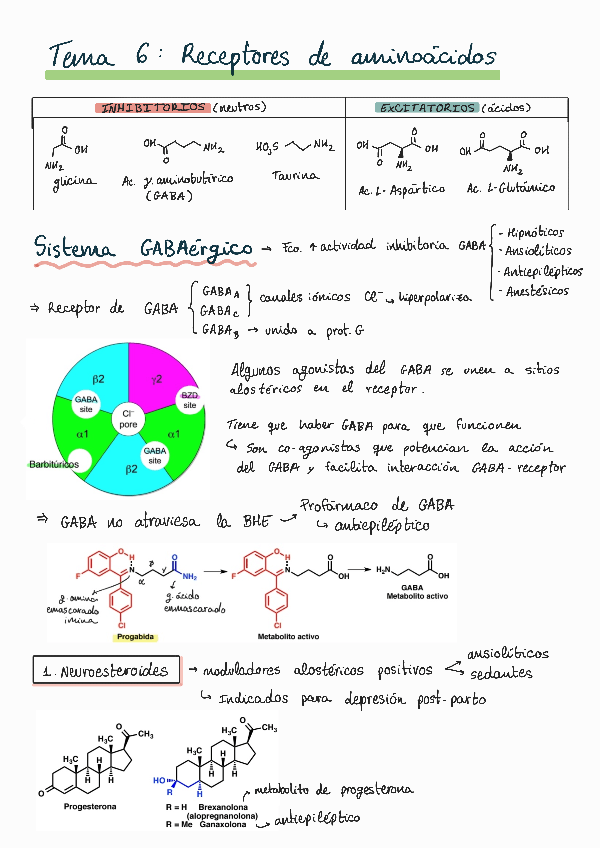 Tema 6: Receptores de aminoácidos
INHIBITORIOS (neutros)
EXCITATORIOS (ácidos)
O
OH
NH₂
glicina
OH
O
NH₂
Ac. γ-aminobutírico
(GABA)
HO₃S
NH₂
Taurina
OH
O
O
OH
NH₂
Ac. L-Aspártico
O
OH
O
OH
NH₂
Ac. L-Glutámico
Sistema GABAérgico → Fco. ↑ actividad inhibitoria GABA
- Hipnóticos
- Ansiolíticos
- Antiepilépticos
- Anestésicos
⇒ Receptor de GABA
GABA A
GABA C
canales iónicos Cl⁻ ↪ hiperpolariza
GABA B → unido a prot. G
β2
γ2
GABA site
BZD site
Cl⁻ pore
α1
α1
GABA site
Barbitúricos
β2
Algunos agonistas del GABA se unen a sitios
alostéricos en el receptor.
Tiene que haber GABA para que funcionen
↳ Son co-agonistas que potencian la acción
del GABA y facilita interacción GABA-receptor
⇒ GABA no atraviesa la BHE → Profármaco de GABA
↳ antiepiléptico
O
H
F
N
α
β
γ
O
NH₂
Cl
g. amino
enmascarado
imina
g. ácido
enmascarado
Progabida
O
H
F
N
O
OH
Cl
Metabolito activo
H₂N
O
OH
GABA
Metabolito activo
1. Neuroesteroides → moduladores alostéricos positivos
ansiolíticos
sedantes
↳ Indicados para depresión post-parto
O
CH₃
H₃C
H₃C
H
H
H
O
Progesterona
O
CH₃
H₃C
H₃C
H
H
H
HO
R
H
R = H Brexanolona
(alopregnanolona)
R = Me Ganaxolona
metabolito de progesterona
antiepiléptico